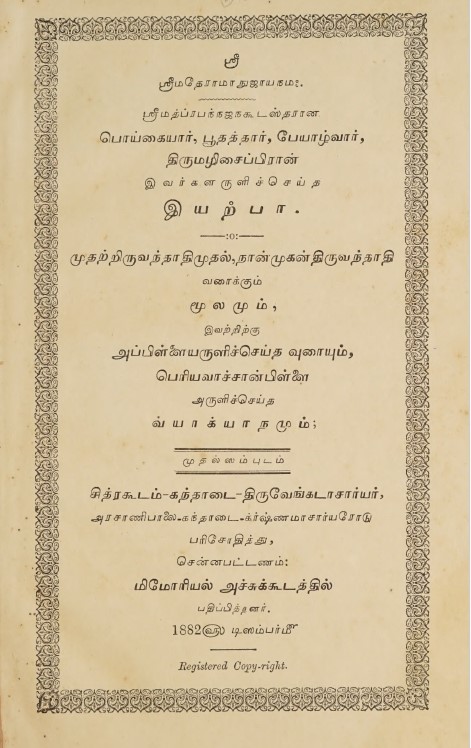 ஸ்ரீ
ஸ்ரீமதேராமாநுஜாயநம:.
ஸ்ரீமத்ப்ரபந்நஜநகூடஸ்தரான
பொய்கையார், பூதத்தார், பேயாழ்வார்,
திருமழிசைப்பிரான்
இவர்களருளிச்செய்த
இயற்பா.
—:0:—
முதற்றிருவந்தாதிமுதல்,நான்முகன்திருவந்தாதி
வரைக்கும்
மூலமும்,
இவற்றிற்கு
அப்பிள்ளையருளிச்செய்த வுரையும்,
பெரியவாச்சான்பிள்ளை
அருளிச்செய்த
வ்யாக்யாநமும்;
முதல்ஸம்புடம்
சித்ரகூடம்-கந்தாடை-திருவேங்கடாசார்யர்,
அரசாணிபாலை-கந்தாடை-க்ர்ஷ்ணமாசார்யரோடு
பரிசோதித்து,
சென்னபட்டணம்:
மிமோரியல் அச்சுக்கூடத்தில்
பதிப்பித்தனர்.
1882௵ டிஸம்பர்௴
Registered Copy-right.